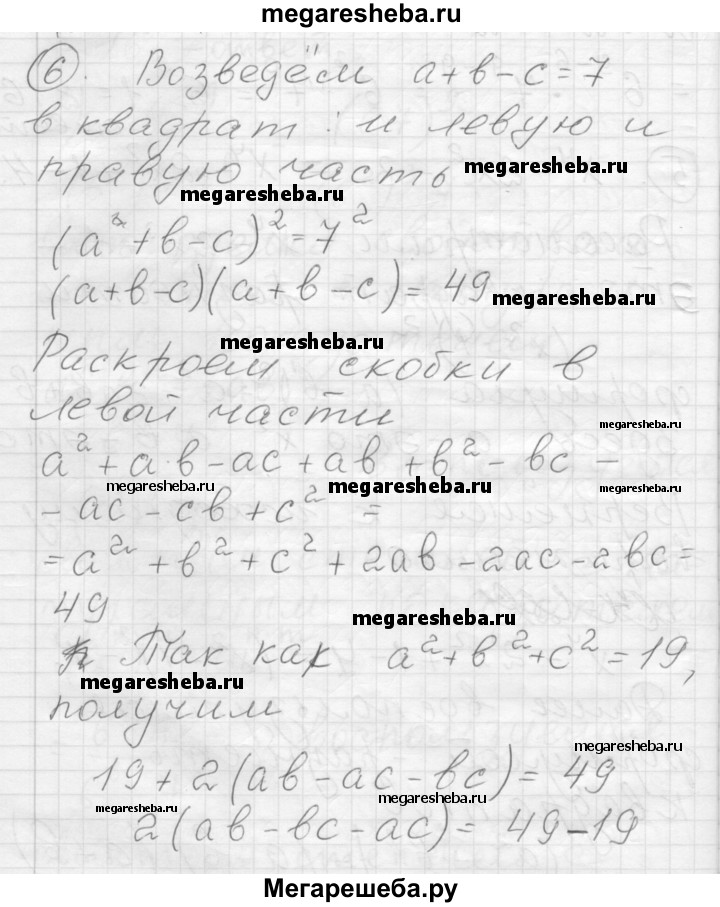 megaresheba.ru
6. Возведём a+b-c=7
в квадрат и левую и
правую часть megaresheba.ru
megaresheba.ru
(a²+b-c)²=7²
(a+b-c)(a+b-c)=49
megaresheba.ru
megaresheba.ru
Раскроем скобки в
левой части
megaresheba.ru
a²+a·b-ac+ab+b²-bc-
megaresheba.ru
megaresheba.ru
megaresheba.ru
-ac-cb+c²=
=a²+b²+c²+2ab-2ac-2bc=
49
megaresheba.ru
Так как a²+b²+c²=19,
megaresheba.ru
получим
megaresheba.ru
19+2(ab-ac-bc)=49
megaresheba.ru
megaresheba.ru
2(ab-bc-ac)=49-19
Мегарешеба.ру